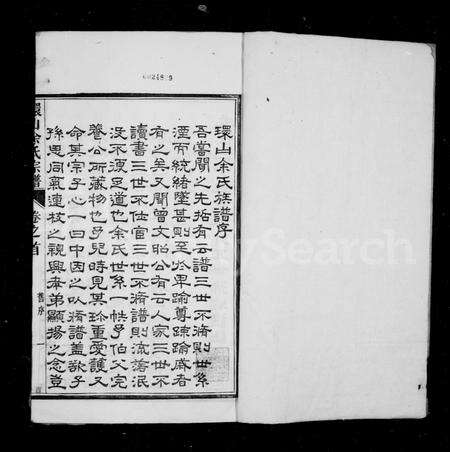 環山余氏族譜序
吾嘗聞之先哲有云譜三世不脩則世系
湮而統緒墜甚則至於卑踰尊踈踰戚者
有之矣又聞曾文昭公有云人家三世不
讀書三世不仕宦三世不脩譜則流落泯
沒不復足道也余氏世系一帙予伯父完
養公所藏物也予兒時見其珍重愛護又
命其宗子心一曰中因之以脩譜蓋欲子
孫思同氣連枝之親興孝弟顯揚之念豈
環山余氏宗譜
卷之首
舊序
一
MySearch